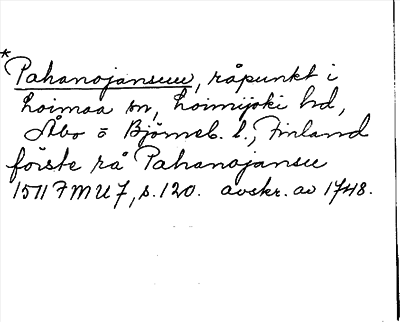 *
Pahanojansuu, råpunkt i
Loimaa sn, Loimijoki hd,
Åbo o Björneb. l., Finland
förste rå Pahanojansu
1511 FMU 7, s. 120. avskr. av 1748.